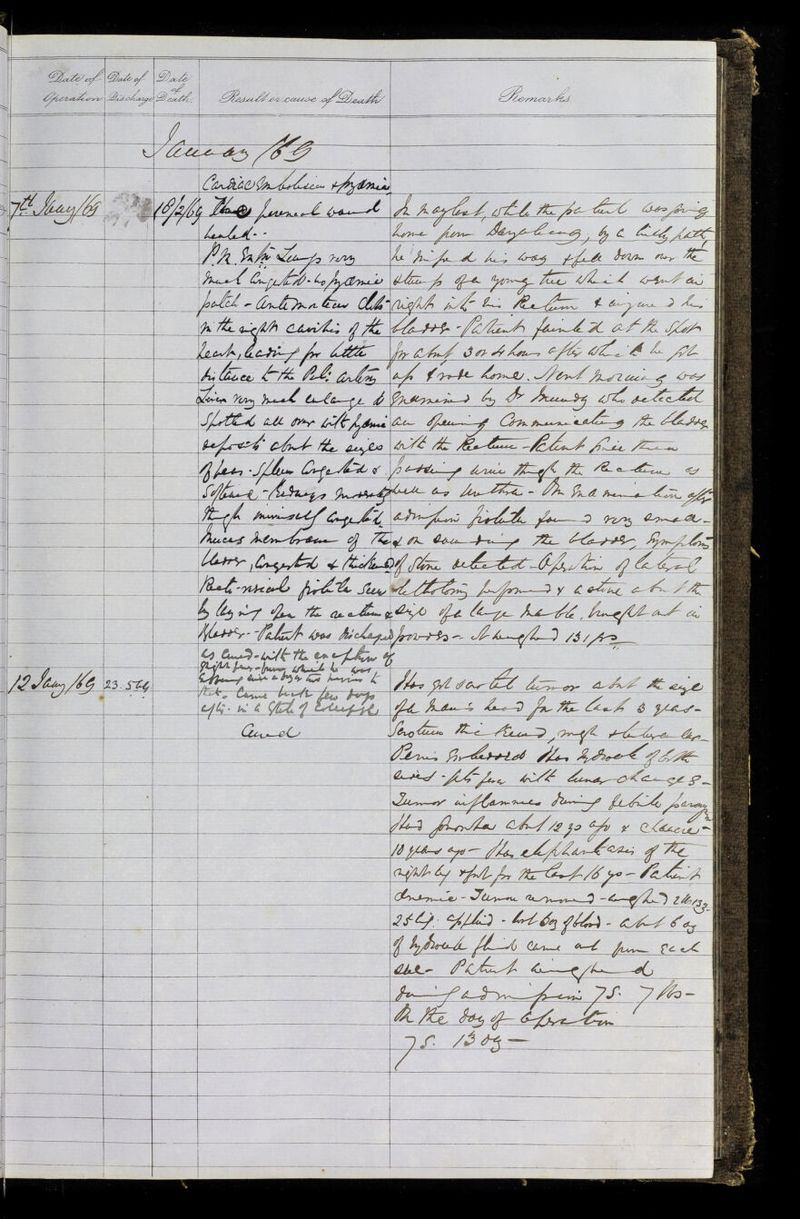 Date of Operation
Date of Discharge
Date of Death
Result or cause of Death
Remarks
January /69
Cardiac Embolism & pyæmia
7th Jany /69
18/2/69
perineal wound
healed..
P.M. Exn Lungs very
much congested - no pyæmic
patch - antemortem clots
in the right cavities of the
heart, leading for little
distance to the Pul: artery
Liver very much enlarged &
Spotted all over with pyæmic
deposits about the sizes
of peas. Spleen congested &
Softened - Kidneys
though congested
mucus membrane of the
bladder, congested & thickened
Recto-vesical fistula seen
by laying open the rectum &
bladder - Patient was discharged
as cured - with the exception of
slight fever which he was
Came back few days
after in a State of collapse
In May last, while the patient was going
home from by a hilly path,
he missed his way & fell down over the
stump of a young tree which went in
right into his Rectum & injured his
bladder - Patient fainted at the spot
for about 3 or 4 hours after which he got
up & rode home. Next morning was
examined by Dr who detected
an opening communicating the bladder
with the Rectum - Patient since then
passing urine though the Rectum as
well as urethra - On examination after
admission fistula found very small -
& on sounding the bladder, Symptoms
of Stone detected - Operation of lateral
lithotomy performed & a stone about the
size of a large marble, brought out in
powder - It weighed 131 grs
12 Jany /69
23.5.69
Cured
Has got scrotal tumor about the size
of a man's head for the last 3 years -
Scrotum thickened, rough &
Penis embedded Has hydrocele of both
sides - gets fever with lunar changes -
Tumor inflammes during febrile paroxysm
Had gonorrhœa about 12 ys ago & chancre -
10 years ago - Has elephantiasis of the
right leg & foot for the last 16 ys - Patient
Anemic - Tumor removed - weighed 2 lb 13 oz -
25 lig. applied - lost 6 oz of blood - about 6 oz
of hydrocele fluid came out from each
side - Patient weighed
during admission 7 S. 7 lbs -
On the day of operation
7 S. 13 oz -